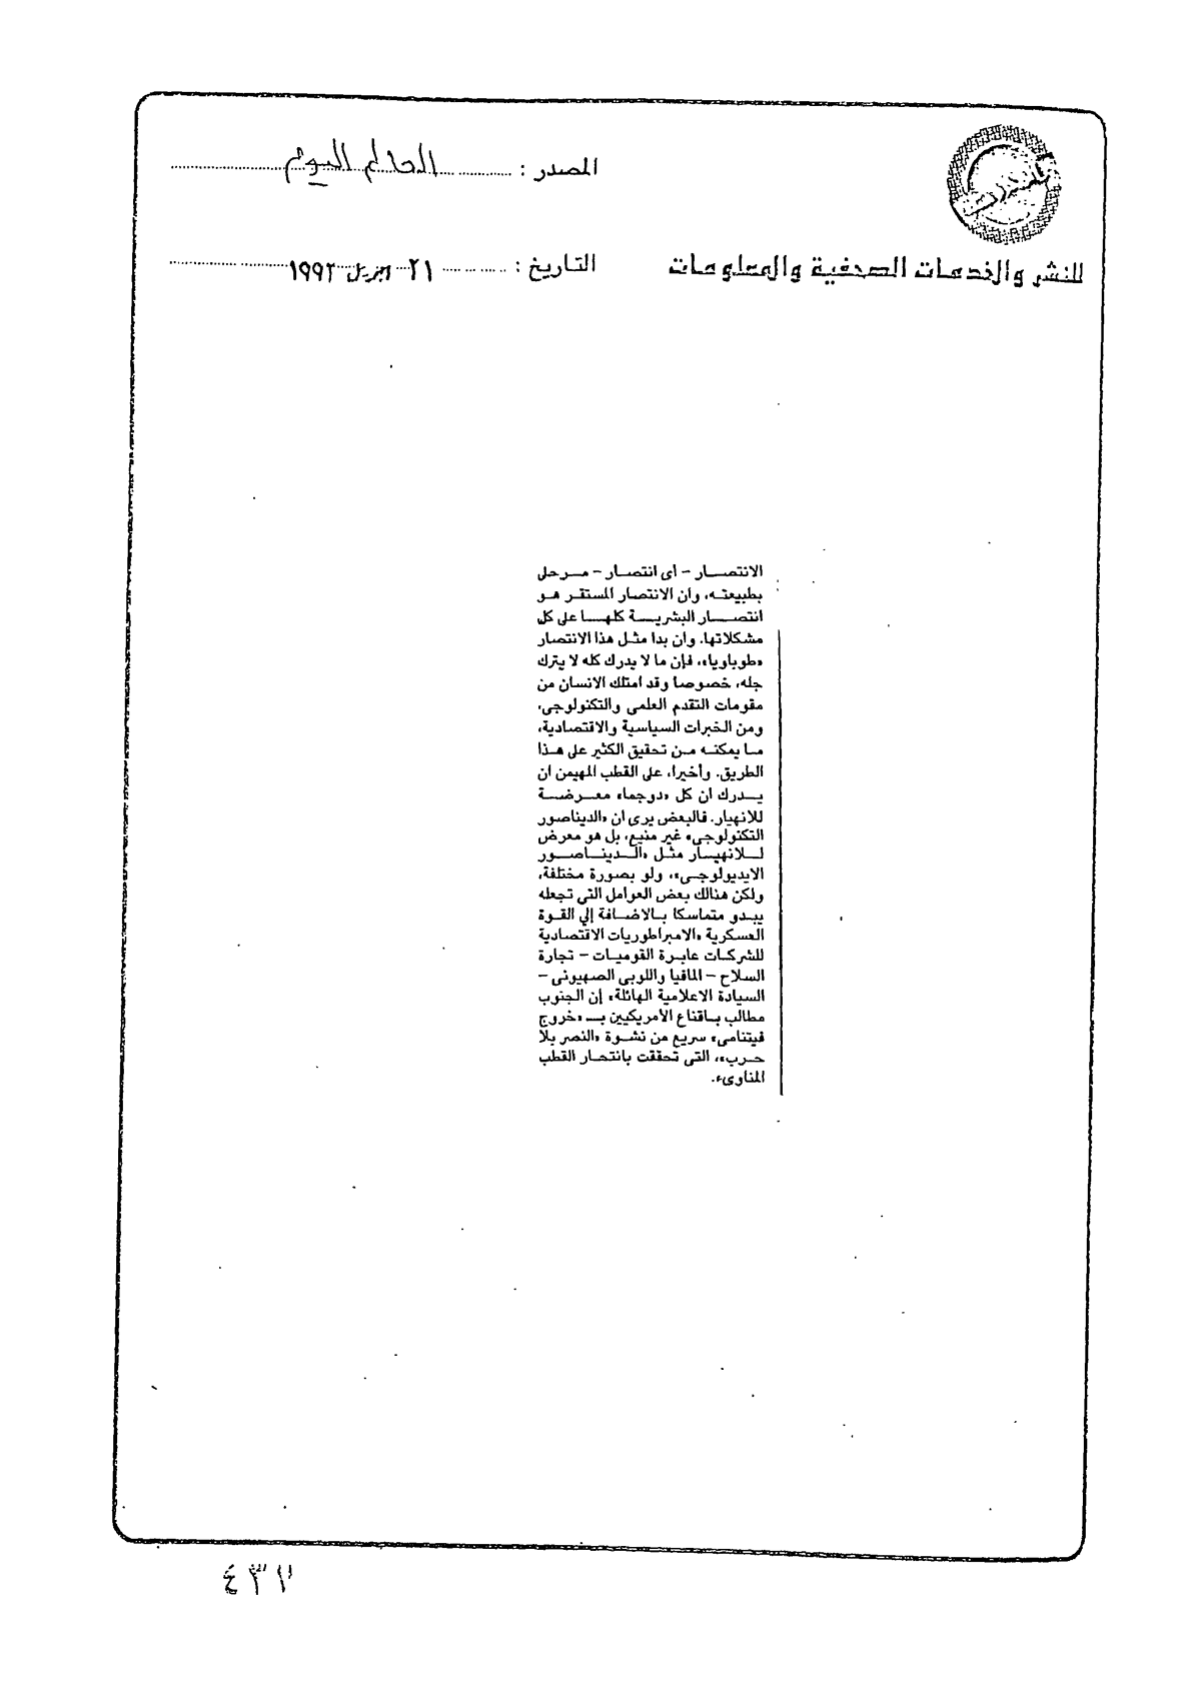 المصدر : العالم اليوم
للنشر والخدمات الصحفية والمعلومات
التاريخ : ٢١ ابريل ١٩٩٢
الانتصار – أى انتصار – مرحلى
بطبيعته، وان الانتصار المستقر هو
انتصار البشرية كلها على كل
مشكلاتها. وان بدا مثل هذا الانتصار
«طوباويا»، فإن ما لا يدرك كله لا يترك
جله، خصوصا وقد امتلك الانسان من
مقومات التقدم العلمى والتكنولوجى،
ومن الخبرات السياسية والاقتصادية،
ما يمكنه من تحقيق الكثير على هذا
الطريق. وأخيرا، على القطب المهيمن ان
يدرك ان كل «دوجما» معرضة
للانهيار. فالبعض يرى ان «الديناصور
التكنولوجى» غير منيع، بل هو معرض
للانهيار مثل «الديناصور
الايديولوجى»، ولو بصورة مختلفة،
ولكن هنالك بعض العوامل التى تجعله
يبدو متماسكا بالاضافة إلى القوة
العسكرية «الامبراطوريات الاقتصادية
للشركات عابرة القوميات – تجارة
السلاح – المافيا واللوبى الصهيونى –
السيادة الاعلامية الهائلة» إن الجنوب
مطالب باقناع الأمريكيين بـ «خروج
فيتنامى» سريع من نشوة «النصر بلا
حرب»، التى تحققت بانتحار القطب
المناوىء.